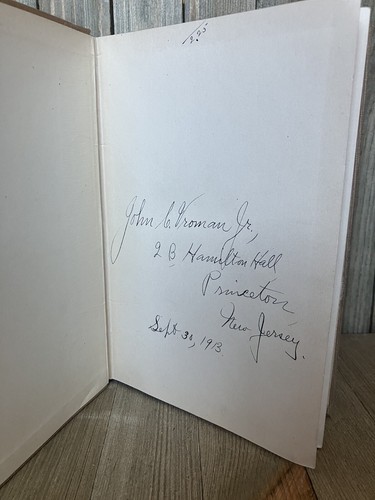 John C. Vroman Jr.,
2 B Hamilton Hall
Princeton
New Jersey.
Sept 30, 1913